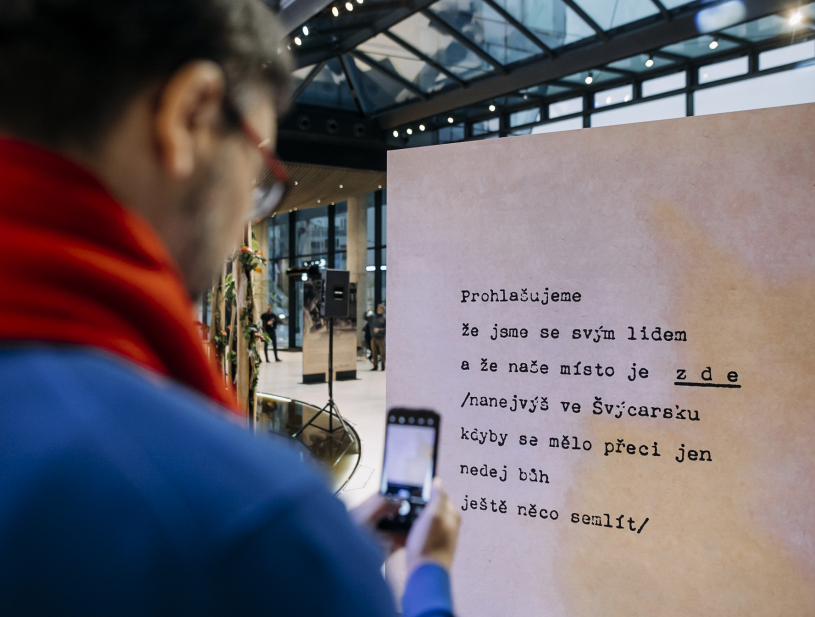 Prohlašujeme
že jsme se svým lidem
a že naše místo je z d e
/nanejvýš ve Švýcarsku
kdyby se mělo přeci jen
nedej bůh
ještě něco semlít/